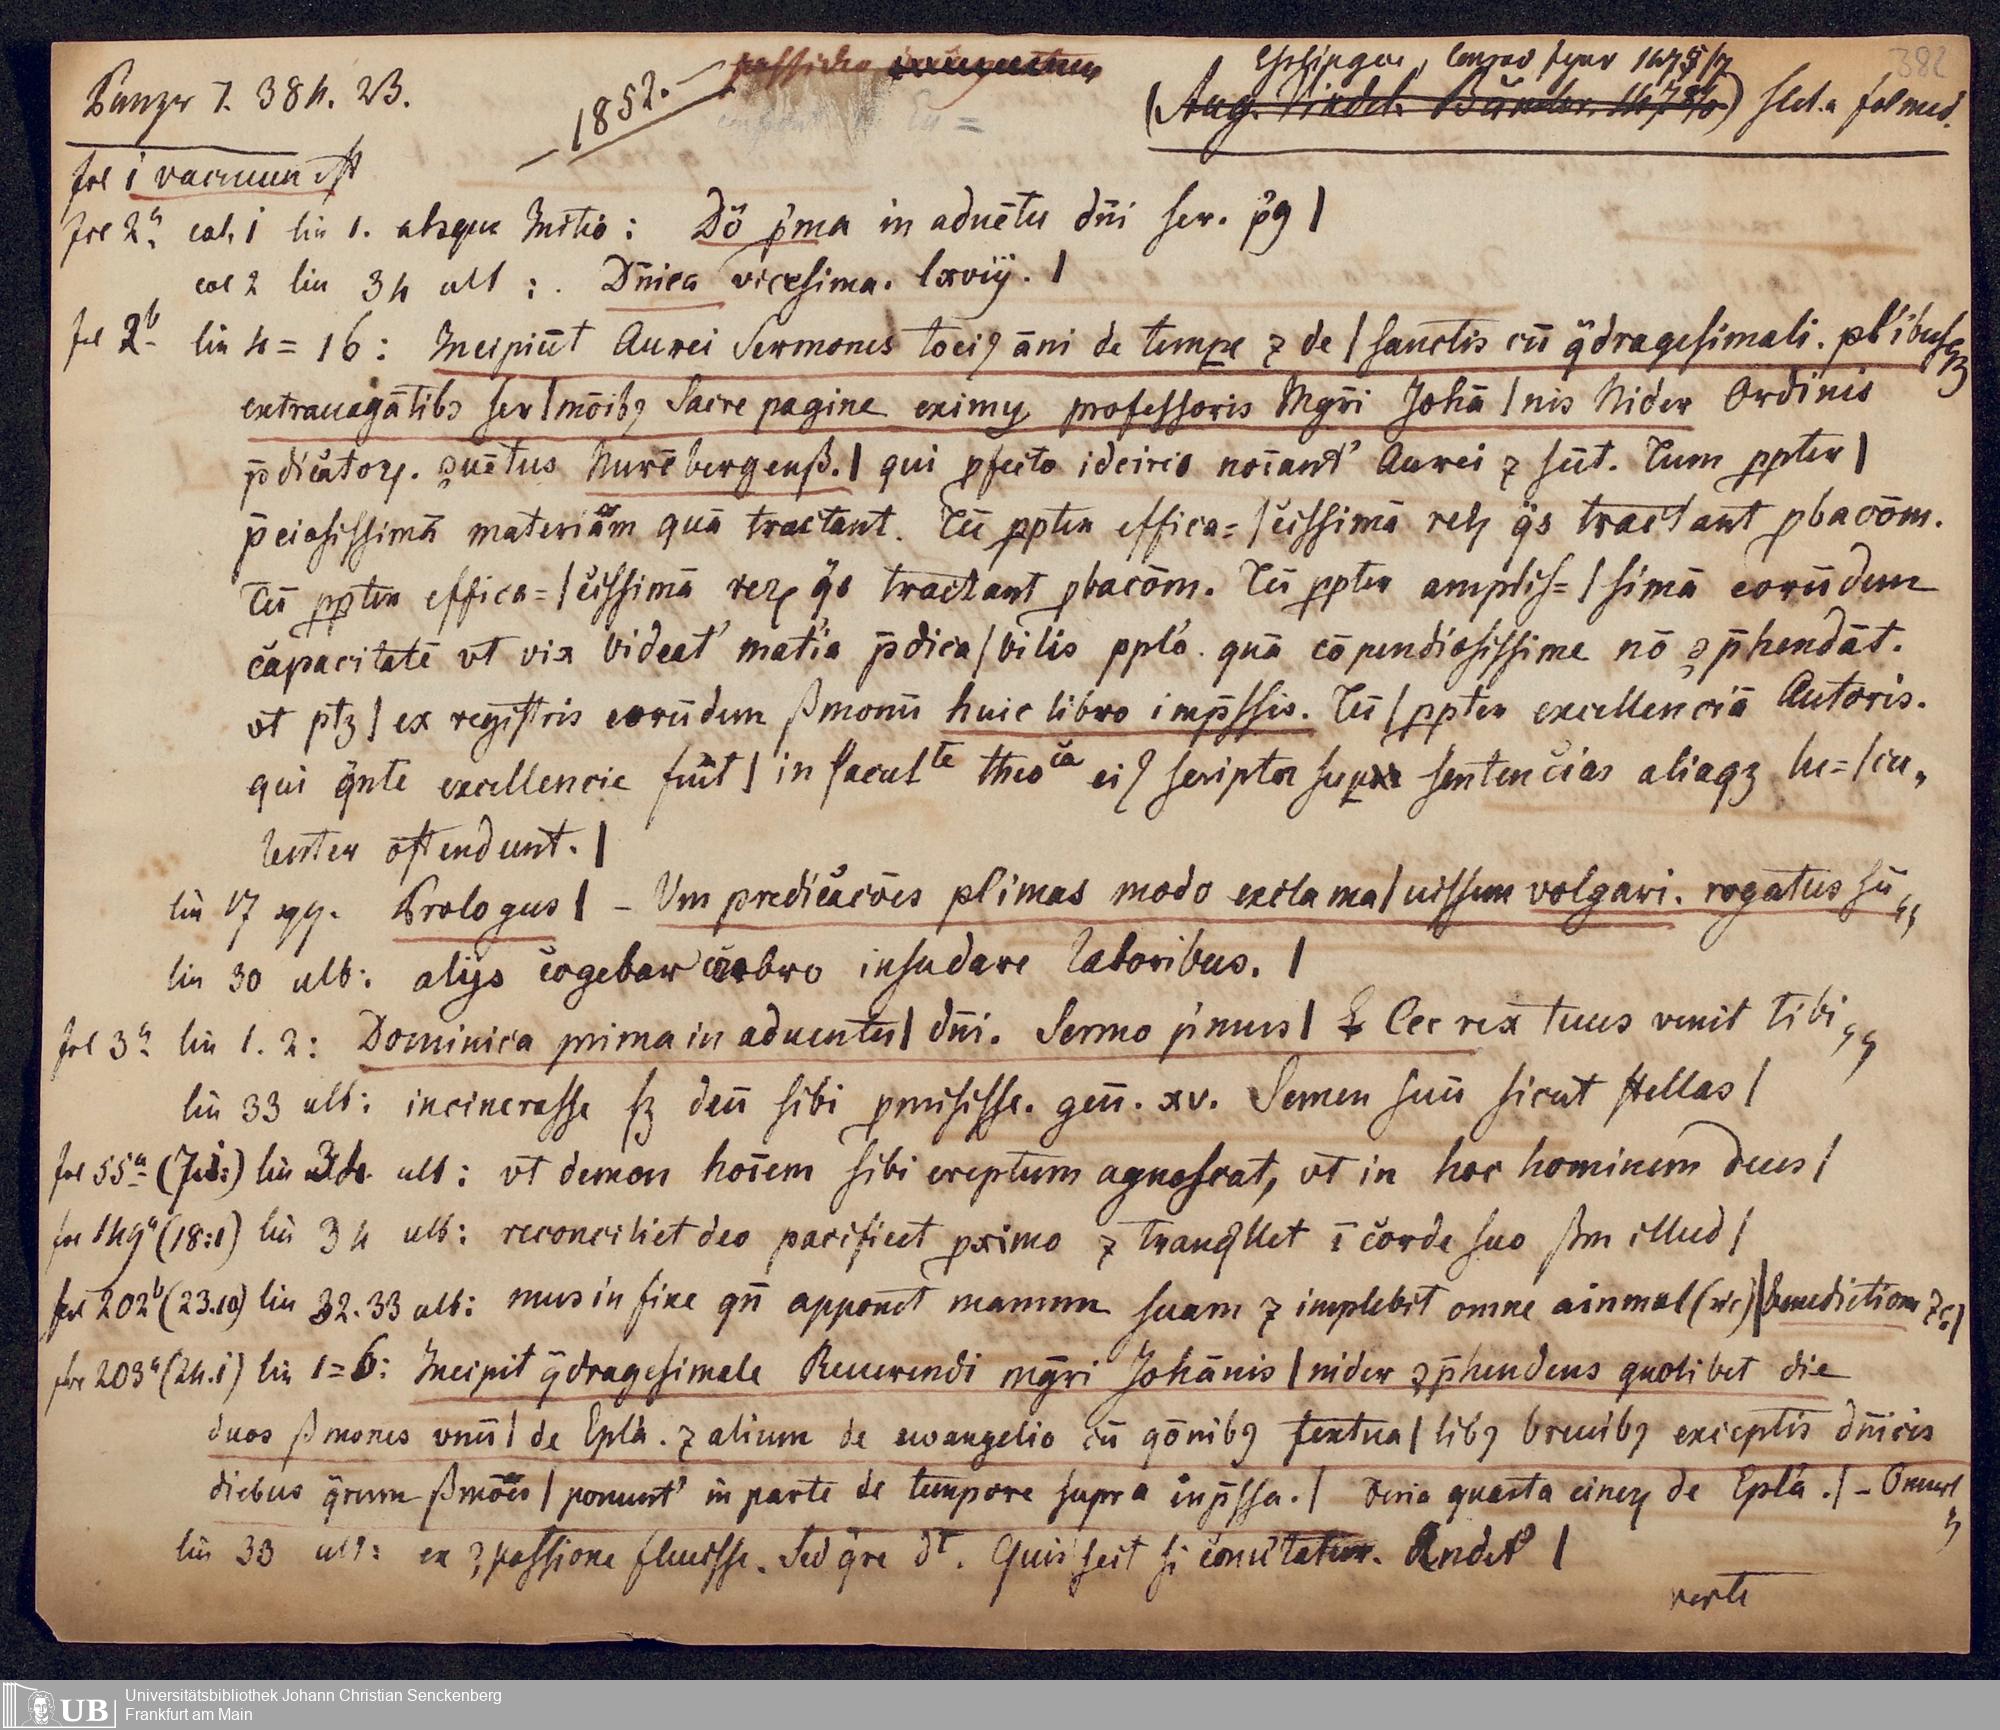 Panzer I. 384. 23.
1852.
possideo
Esslingen, Conrad Fyner 1475/7
(Aug. Vindel. Bämler. 1476) s l et a fol med.
382
fol i vacuum est
fol 2a col. i lin 1. absque Initio: Dō p'ma in aduētu dn̄i ser. p'9 |
col 2 lin 34 ult: Dn̄ica vicesima. lxvij. |
fol 2b lin 4=16: Incipiūt Aurei Sermones toci9 āni de tempe ⁊ de | sanctis cū q̈dragesimali. pl'ibusqꝫ
extrauagātibꝫ ser|mōibꝫ Sacre pagine eximij professoris Mgr̄i Johā|nis Nider Ordinis
p̄dicatoꝝ. ꝯuētus Nurēbergenß. | qui ꝓfecto idcirco noīant' Aurei ⁊ sūt. Tum ꝓpter |
p̄ciosissimā materiam quā tractant. Tū ꝓpter effica=|cissimā reꝝ q̈s tractant ꝓbacōm.
Tū ꝓpter effica=|cissimā reꝝ q̈s tractant ꝓbacōm. Tū ꝓpter amplis=|simā eorūdem
capacitatē vt vix videat' mat'ia p̄dica|bilis pplo. quā cōpendiosissime nō ꝯp̄hendāt.
vt ptꝫ | ex registris eorūdem ßmonū huic libro imp̄ssis. Tū | ꝓpter excellenciā Autoris.
qui q̈nte excellencie fuit | in facultte theoca ei9 scripta supra sentencias aliaqꝫ lu=|cu„
lenter ostendunt. |
lin 17 sqq. Prologus | - Um predicacōes pl'imas modo exclama|uissem volgari. rogatus sū„
lin 30 ult: alijs cogebar crebro insudare laboribus. |
fol 3a lin 1. 2: Dominica prima in aduentu | dn̄i. Sermo p'mus | E Cce rex tuus venit tibi„
lin 33 ult: incinerasse sꝫ deū sibi ꝓmisisse. gen̄. xv. Semen suū sicut stellas |
fol 55a (7.i:) lin 34 ult: vt demon hoīem sibi ereptum agnoscat, vt in hoc hominem deus |
fol 149a (18:i) lin 34 ult: reconciliet deo pacificet ꝓximo ⁊ tranq̈llet ī corde suo ßm illud |
fol 202b (23.10) lin 32.33 ult: mus in fine qn̄ apponet manum suam ⁊ implebit omne ainmal (sic) | benedictione ⁊c. |
fol 203a (24.i) lin 1=6: Incipit q̈dragesimale Reuerendi mgr̄i Johānis | nider ꝯp̄hendens quolibet die
duos ßmones vnū | de Epl'a. ⁊ alium de ewangelio cū qōnibꝫ textua|libꝫ breuibꝫ exceptis dn̄icis
diebus q̈rum ßmōes | ponunt' in parte de tempore supra inp̄ssa. | Feria quarta cineꝝ de Epl'a. | - Onuert„
lin 33 ult: ex ꝯpassione fleuisse. Sed q̈re dt. Quis scit si conu'tatur. Rndet' |
verte
Universitätsbibliothek Johann Christian Senckenberg
Frankfurt am Main
UB